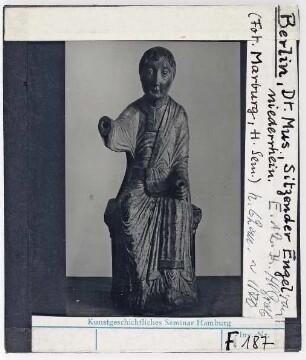 Berlin, Dt. Mus., Sitzender Engel
niederrhein. E. 12. Jh.
(Fot. Marburg, H. Sem.)
Kunstgeschichtliches Seminar Hamburg
F 187